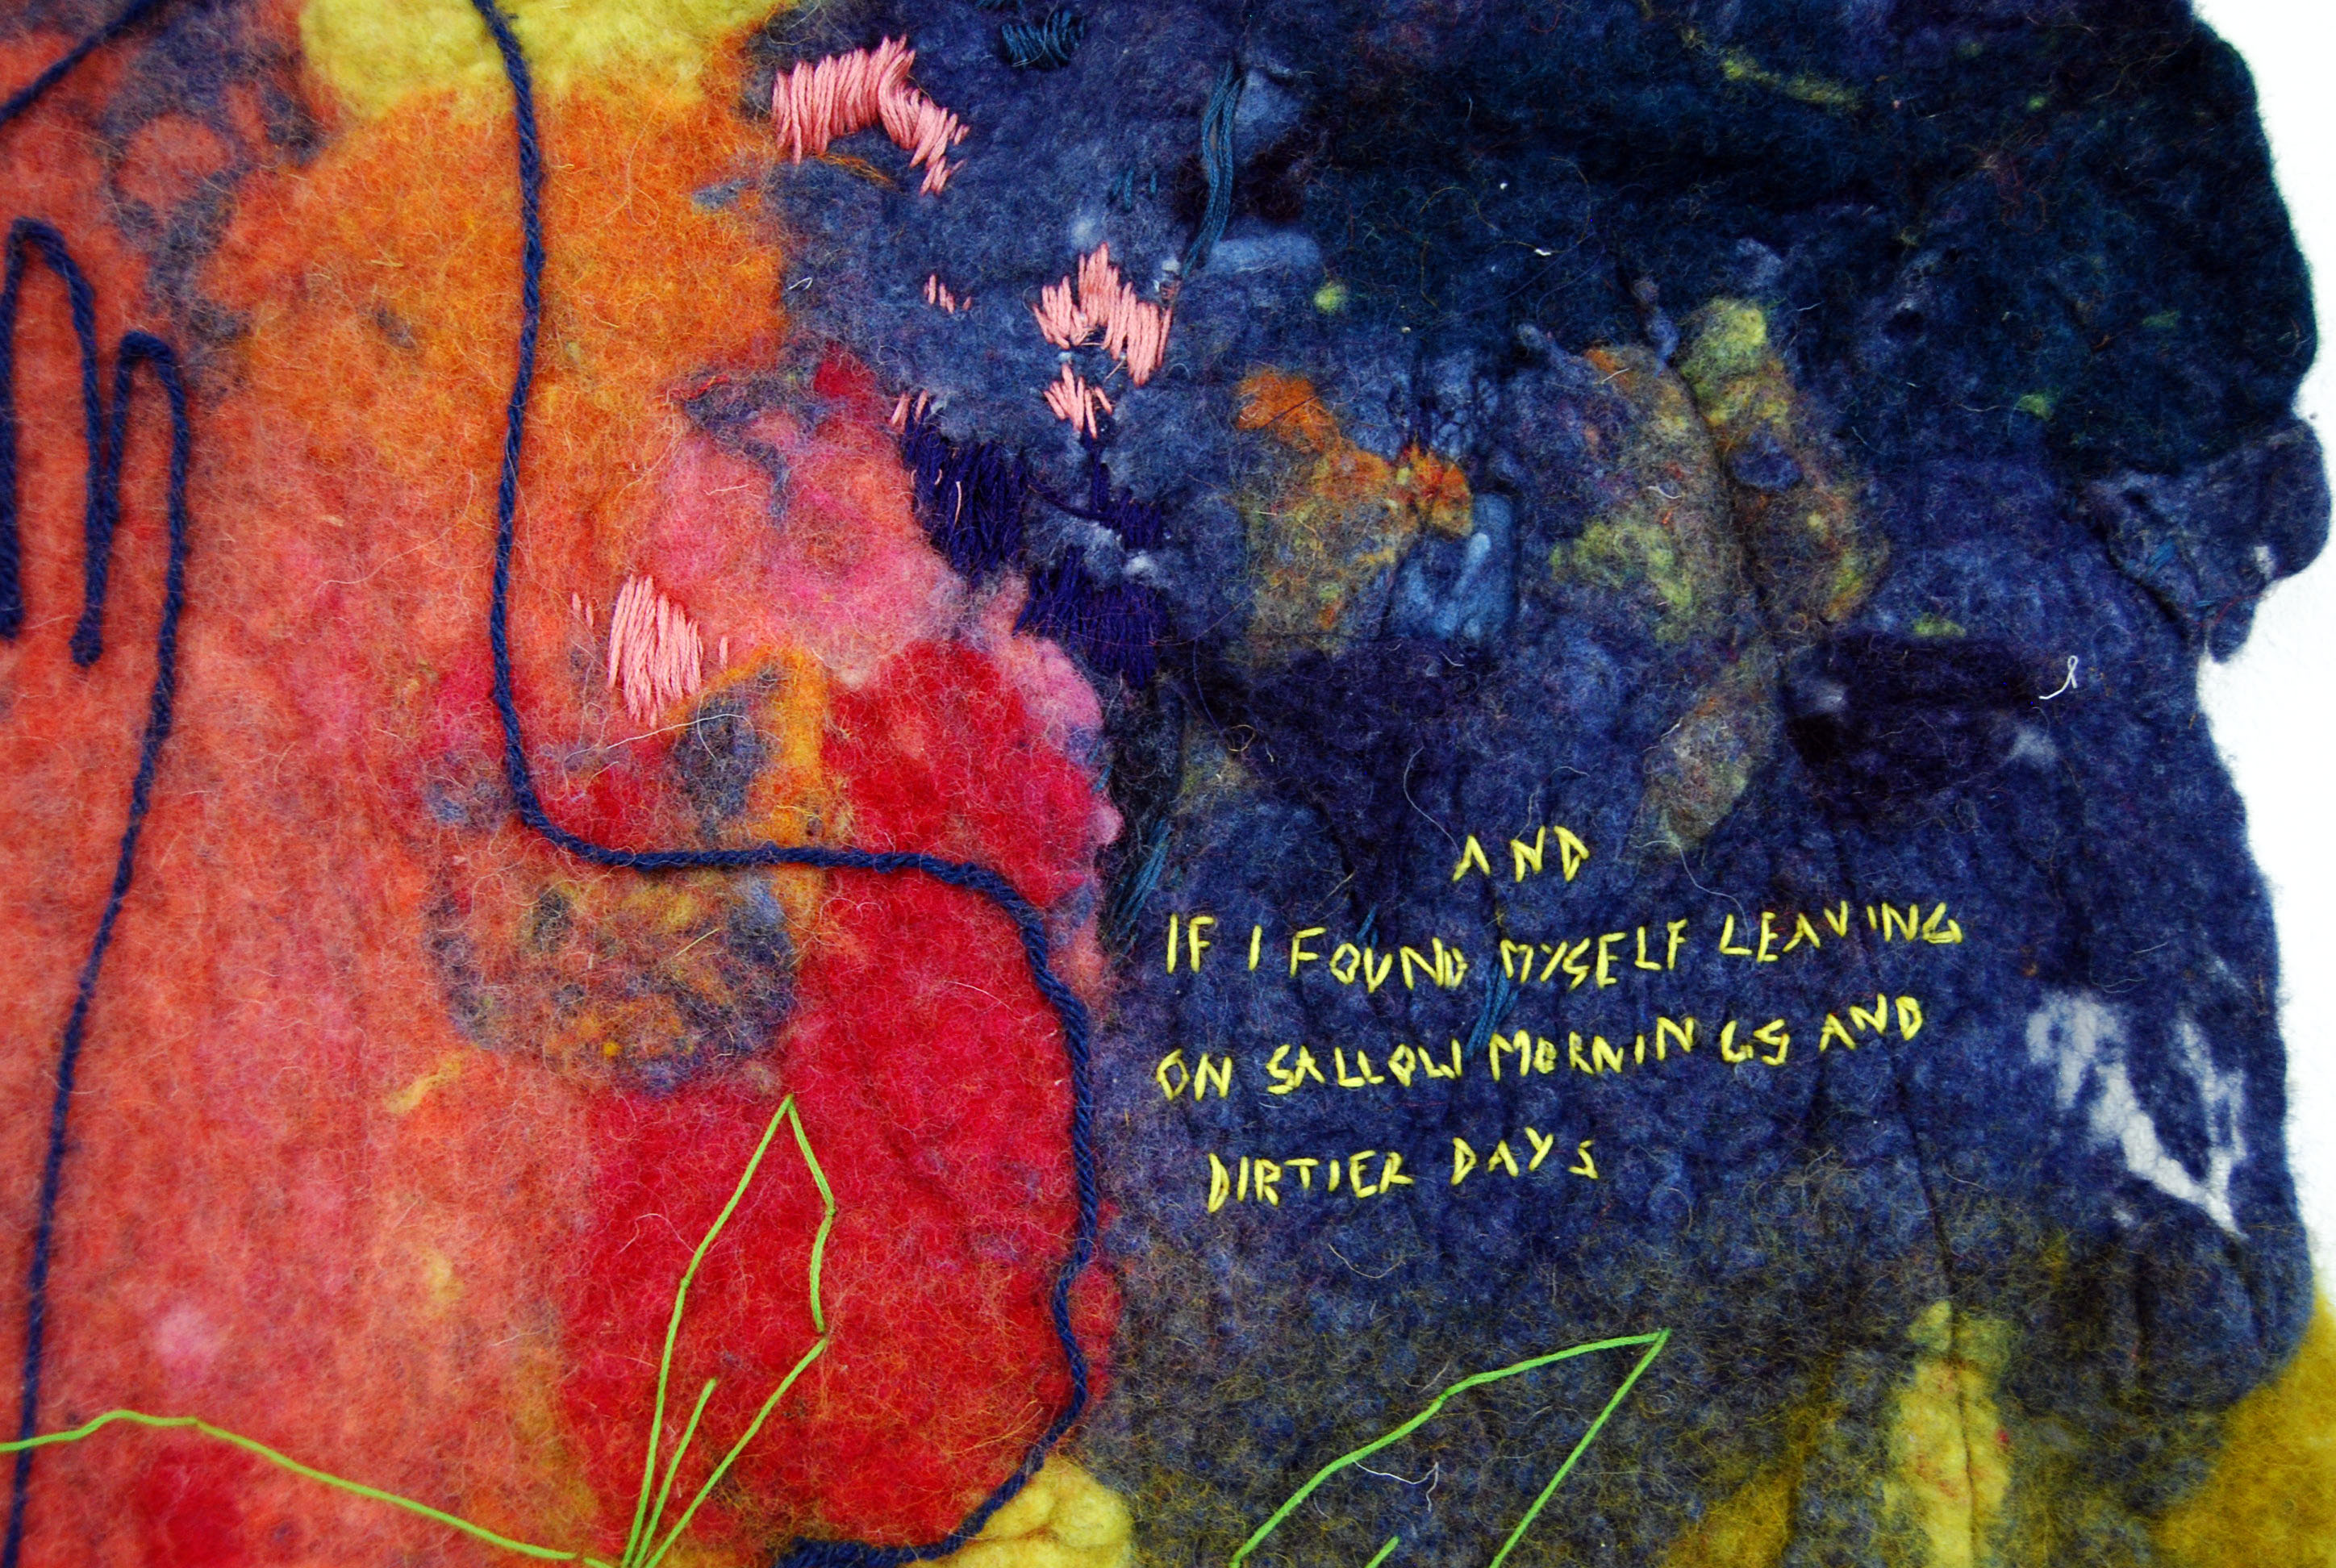 AND
IF I FOUND MYSELF LEAVING
ON SALLOW MORNINGS AND
DIRTIER DAYS